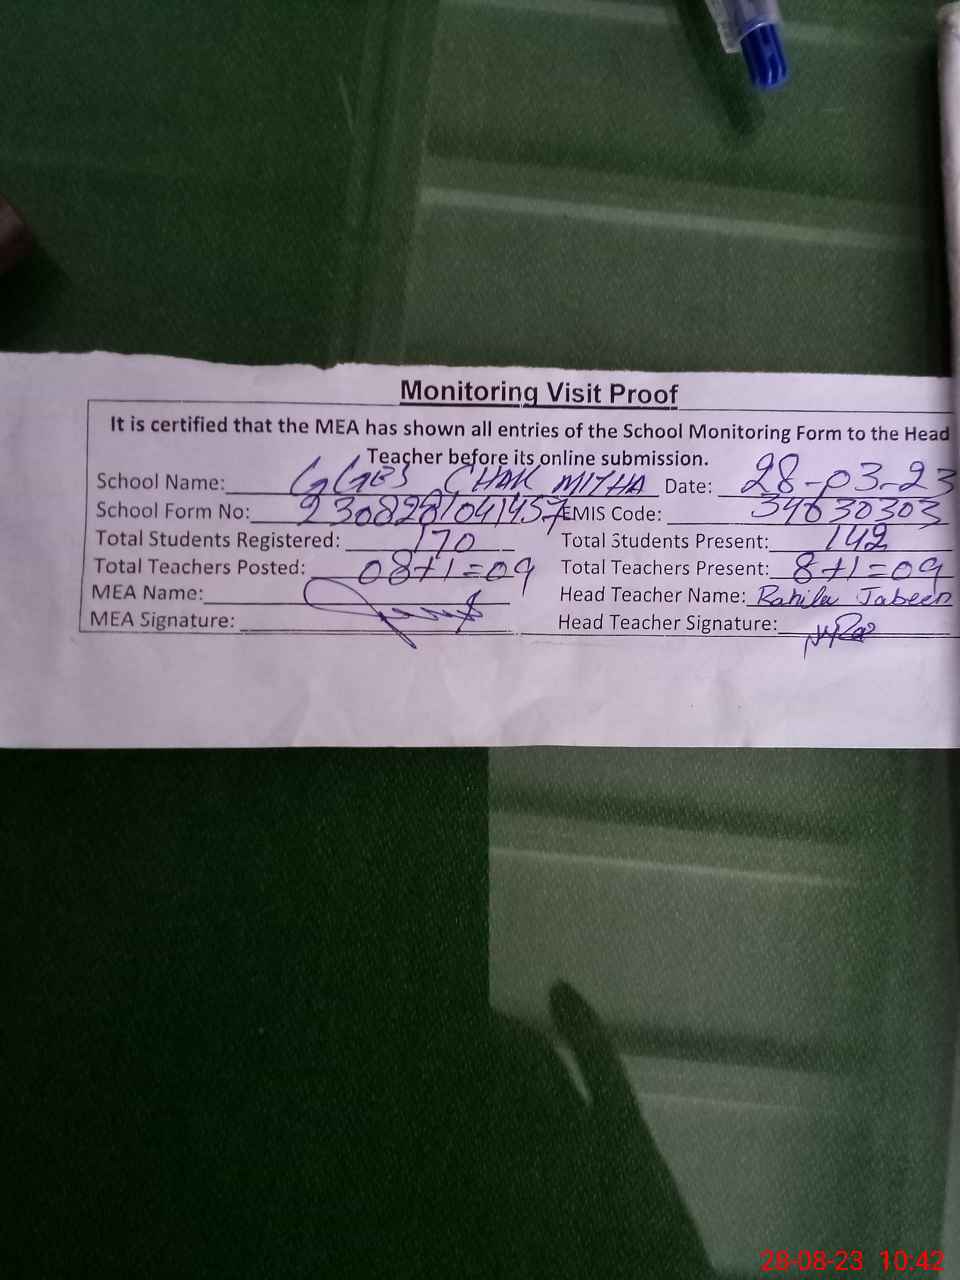 Monitoring Visit Proof
It is certified that the MEA has shown all entries of the School Monitoring Form to the Head
Teacher before its online submission.
School Name: GGES CHAK MITHA Date: 28-03-23
School Form No: 2308281041457 EMIS Code: 34630303
Total Students Registered: 170 Total Students Present: 142
Total Teachers Posted: 08+1=09 Total Teachers Present: 8+1=09
MEA Name: Head Teacher Name: Rahila Jabeen
MEA Signature: Head Teacher Signature:
28-08-23 10:42